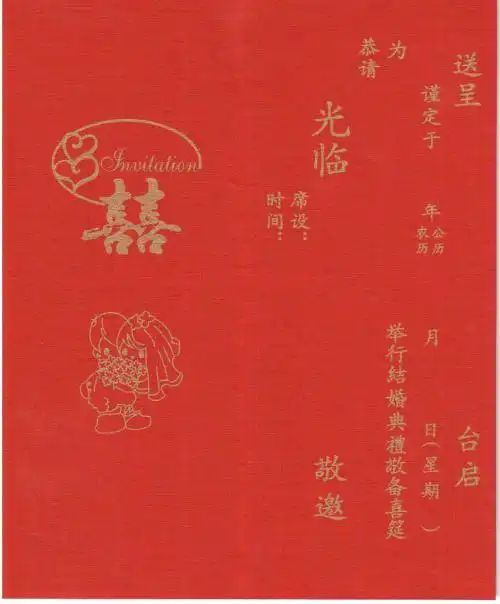 送呈 台启
谨定于 年 公历 农历 月 日(星期 )
为 举行結婚典禮敬备喜筵
恭请
光临 敬邀
席设:
时间:
Invitation
囍